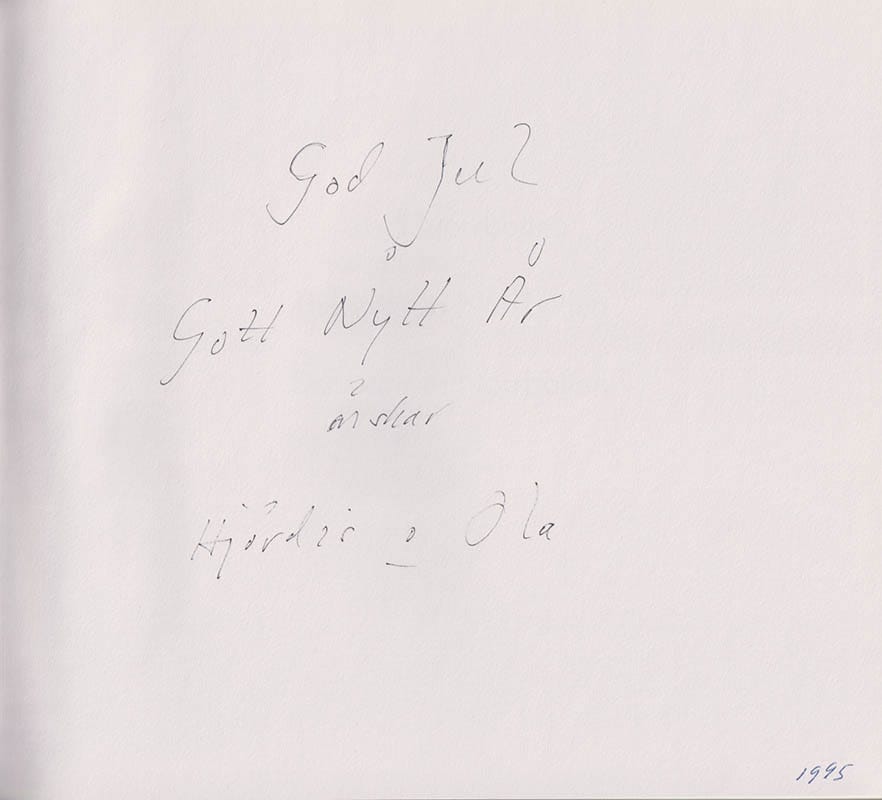 God Jul
o
Gott Nytt År
önskar
Hjördis o Ola
1995